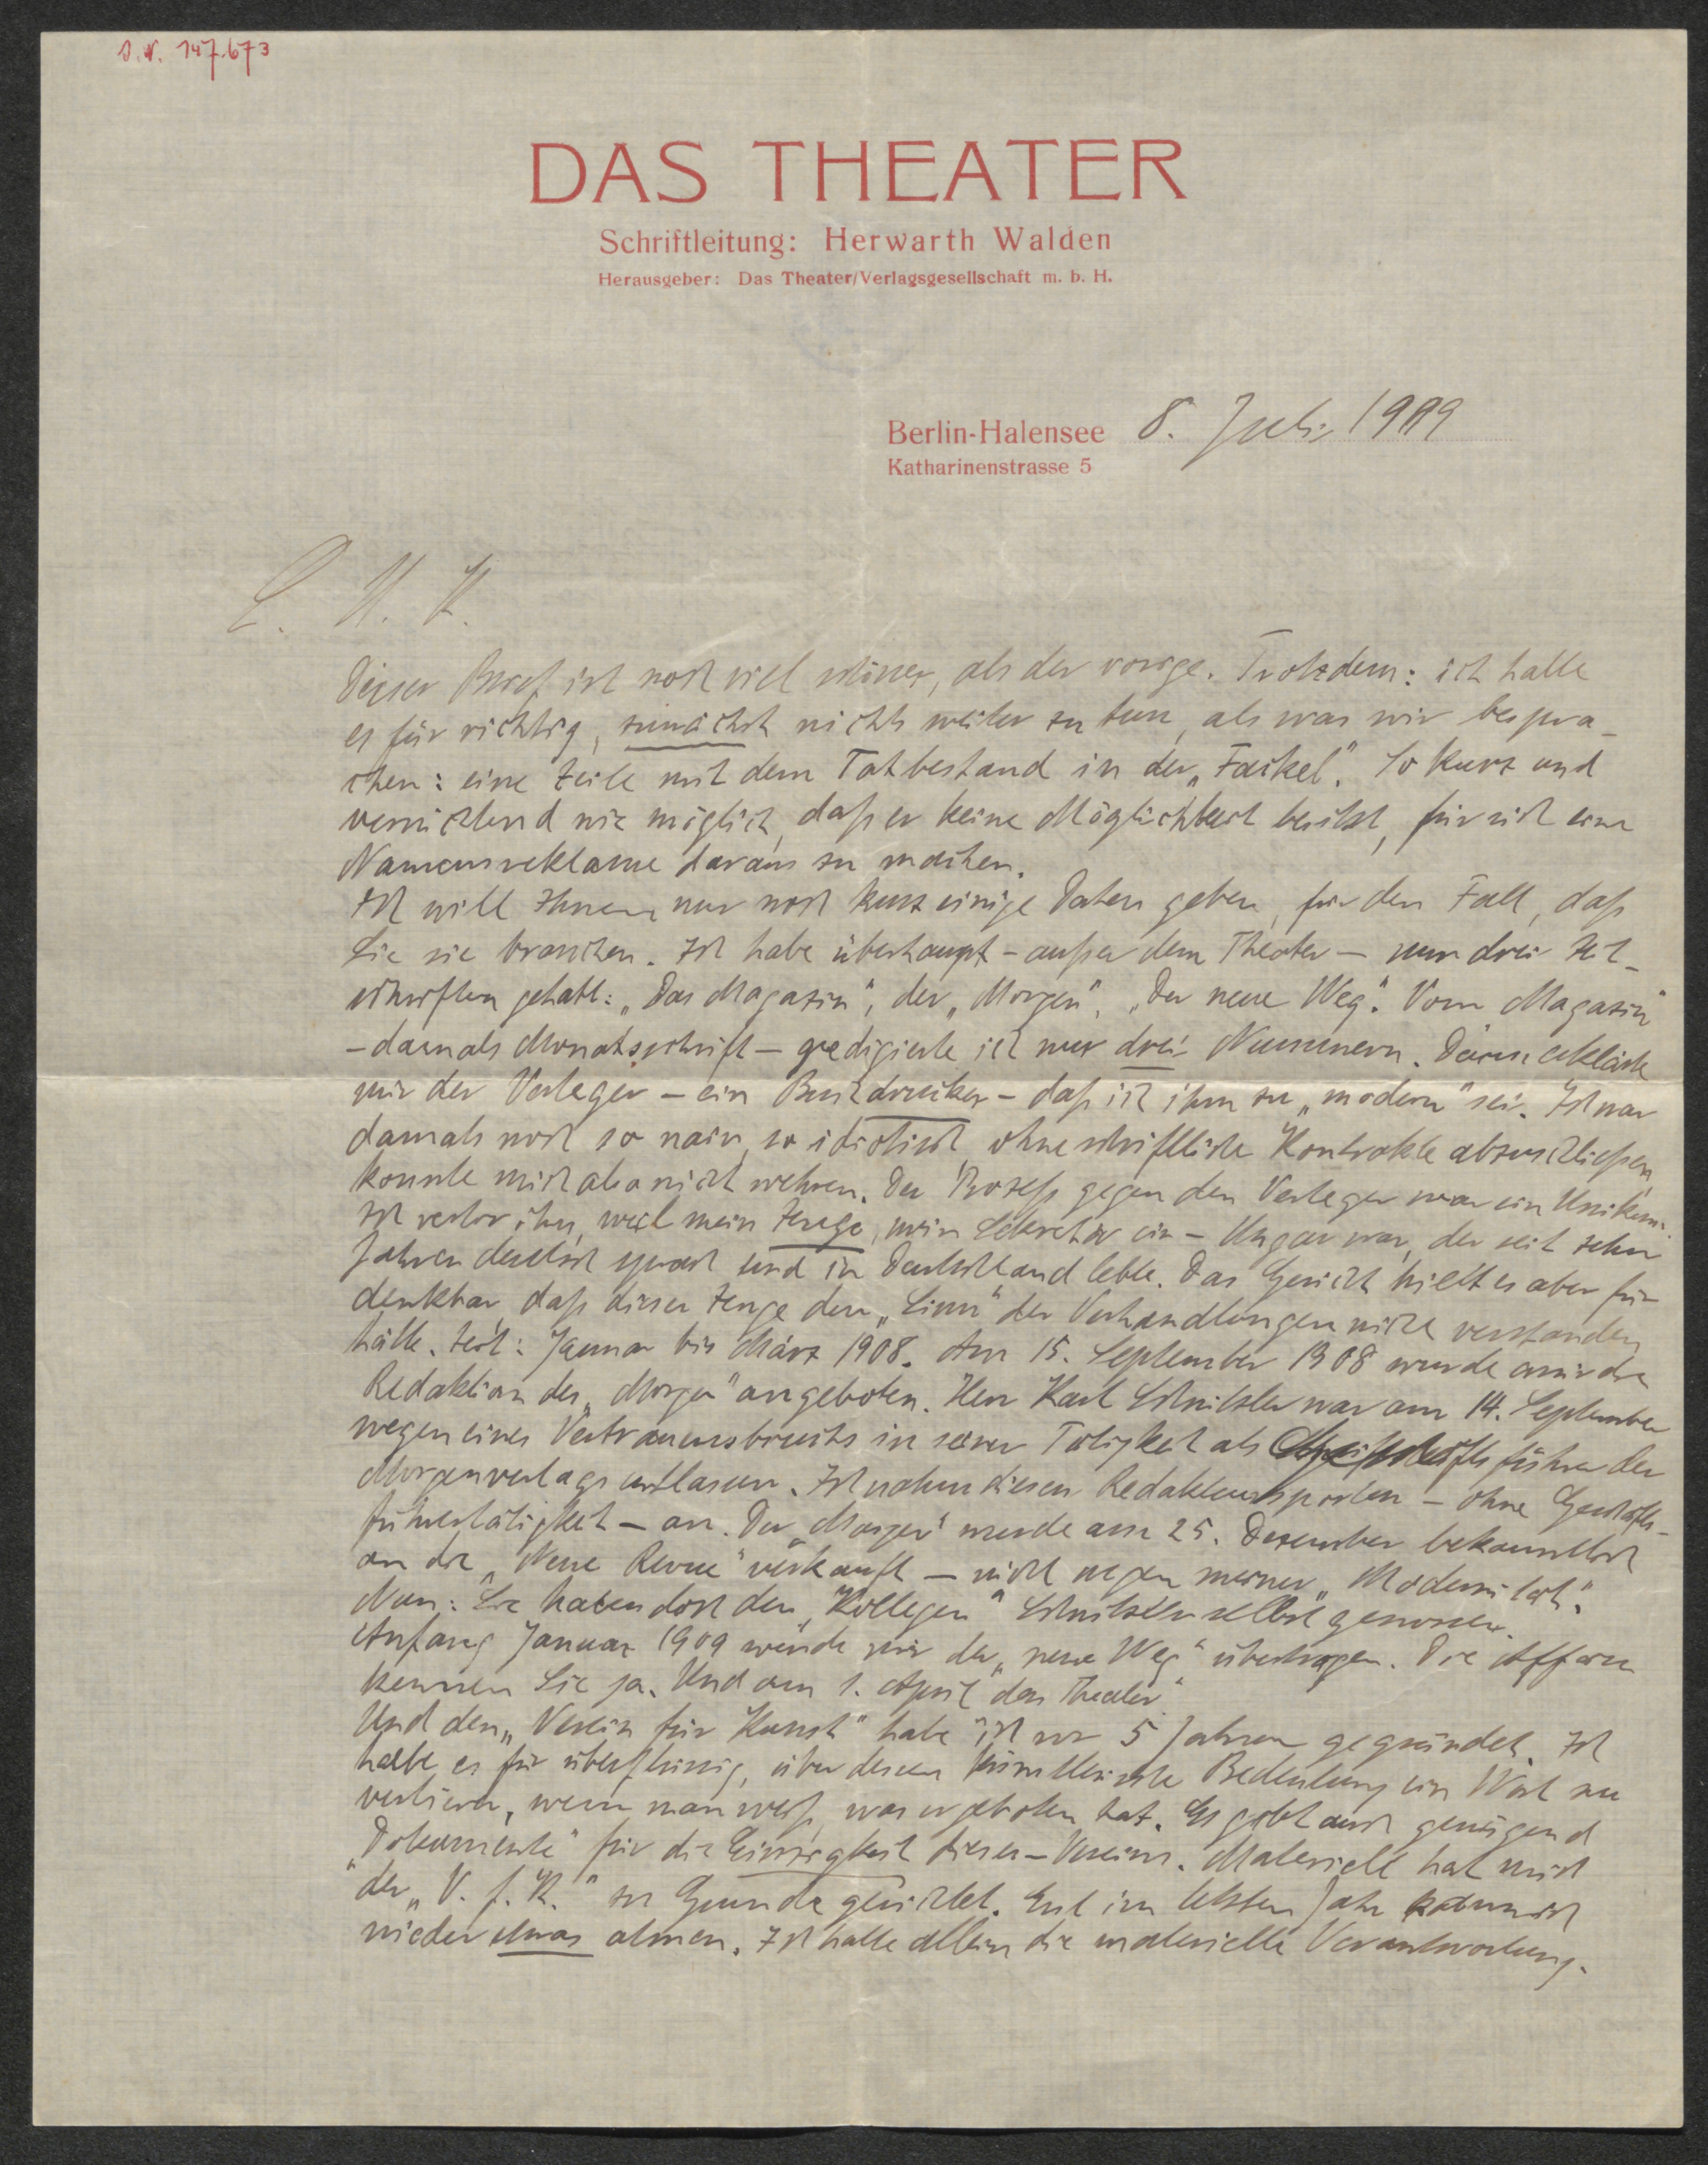 I.N. 147.673
DAS THEATER
Schriftleitung: Herwarth Walden
Herausgeber: Das Theater/Verlagsgesellschaft m. b. H.
Berlin-Halensee 8. Juli 1909
Katharinenstrasse 5
L. K. K.
Dieser Brief ist noch viel schöner, als der vorige. Trotzdem: ich halte
es für richtig, zunächst nichts weiter zu tun, als was wir bespra-
chen: eine Zeile mit dem Tatbestand in der „Fackel". So kurz und
vernichtend wie möglich, daß er keine Möglichkeit besitzt, für sich eine
Namensreklame daraus zu machen.
Ich will Ihnen nur noch kurz einige Daten geben, für den Fall, daß
Sie sie brauchen. Ich habe überhaupt – außer dem Theater – nur drei Zeit-
schriften gehabt: „Das Magazin", der „Morgen", „Der neue Weg". Vom „Magazin"
– damals Monatsschrift – redigierte ich nur drei Nummern. Dann erklärte
mir der Verleger – ein Buchdrucker – daß ich ihm zu „modern" sei. Ich war
damals noch so naiv, so idiotisch, ohne schriftliche Kontrakte abzuschließen,
konnte mich also nicht wehren. Der Prozeß gegen den Verleger war ein Unikum.
Ich verlor ihn, weil mein Zeuge, mein Sekretär ein – Ungar war, der seit zehn
Jahren deutsch sprach und in Deutschland lebte. Das Gericht hielt es aber für
denkbar, daß dieser Zeuge den „Sinn" der Verhandlungen nicht verstanden
hätte. Zeit: Januar bis März 1908. Am 15. September 1908 wurde mir die
Redaktion des „Morgen" angeboten. Herr Karl Schnitzler war am 14. September
wegen eines Vertrauensbruchs in seiner Tätigkeit als Geschäftsführer des
Morgenverlags entlassen. Ich nahm diesen Redakteursposten – ohne Geschäfts-
führertätigkeit – an. Der „Morgen" wurde am 25. Dezember bekanntlich
an die „Neue Revue" verkauft – nicht wegen meiner „Modernität".
Nun: Sie haben doch den „Kollegen" Schnitzler selbst genossen.
Anfang Januar 1909 wurde mir der „neue Weg" übertragen. Die Affären
kennen Sie ja. Und am 1. April „das Theater"
Und den „Verein für Kunst" habe ich vor 5 Jahren gegründet. Ich
halte es für überflüssig, über dessen künstlerische Bedeutung ein Wort zu
verlieren, wenn man weiß, was er geboten hat. Es gibt auch genügend
„Dokumente" für die Einzigkeit dieses – Vereins. Materiell hat mich
der „V. f. K." zu Grunde gerichtet. Erst im letzten Jahr kann ich
wieder etwas atmen. Ich hatte allein die materielle Verantwortung.